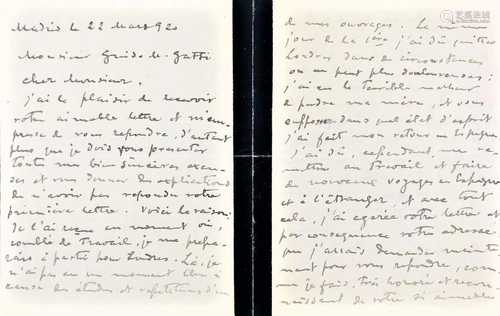 Madrid le 22 Mars 920
Monsieur Guido M. Gatti
cher Monsieur.
j'ai le plaisir de recevoir
votre aimable lettre et m'em-
presse de vous repondre, d'autant
plus que je dois vous presenter
toute mes bien sincères excu-
ses et vous donner des explications
de n'avoir pas repondu votre
première lettre. Voici la raison:
Je l'ai reçue au moment où,
comblé de travail, je me prépa-
rais à partir pour Londres. Là, je
n'ai pu en un moment libre à
cause des études et repetitions d'un
de mes ouvrages. Le même
jour de la 1ère j'ai dû quitter
Londres dans de circonstances
on ne peut plus douloureuses:
j'ai eu le terrible malheur
de perdre ma mère, et vous
supposez dans quel état d'esprit
j'ai fait mon retour en Espagne
j'ai dû, cependant me re-
mettre au travail et faire
de nouveaux voyages en Espagne
et à l'étranger, et avec tout
cela, j'ai egarée votre lettre et
par consequence votre adresse
que j'allais demander mainte-
nant pour vous repondre, com-
me je fais. Très honoré et recon-
naissant de votre si aimable